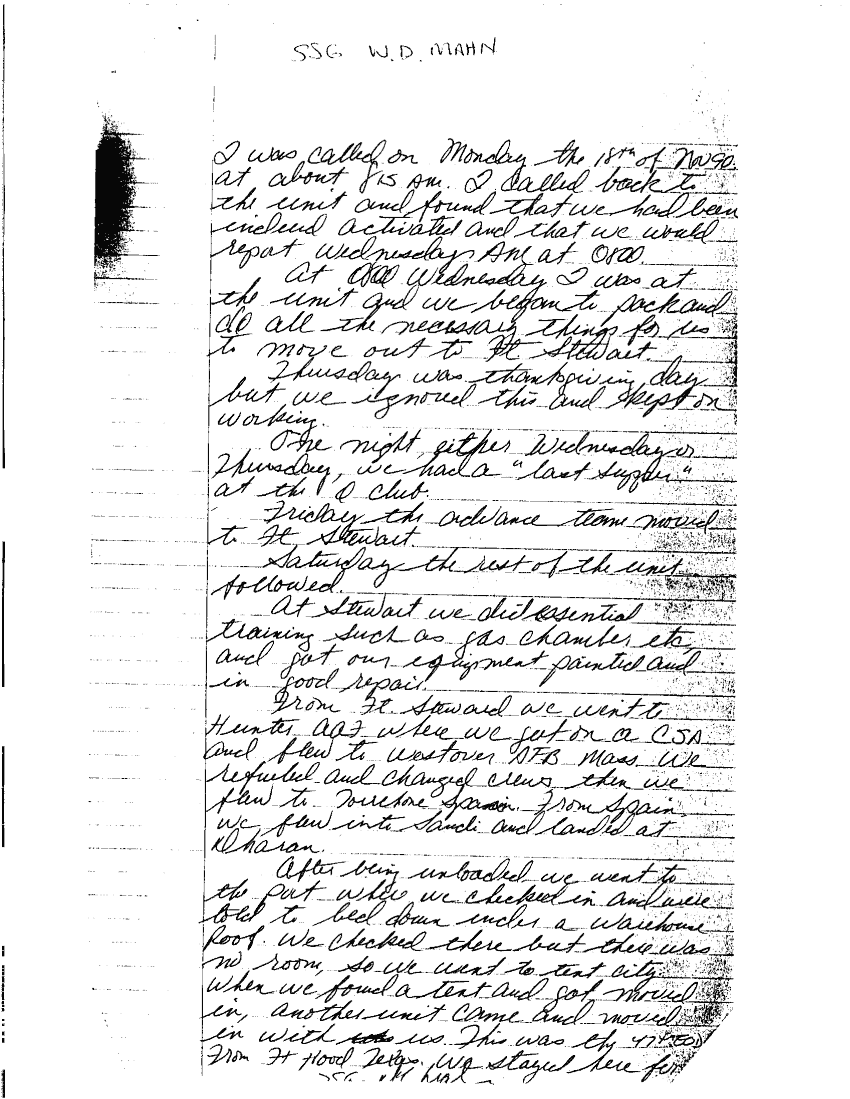 SSG W.D. MAHN
I was called on Monday the 18th of Nov 90.
at about 815 AM. I called back to
the unit and found that we had been
indeed activated and that we would
report Wednesday AM at 0800.
At 0800 Wednesday I was at
the unit and we began to pack and
do all the necessary things for us
to move out to Ft Stewart.
Thursday was thanksgiving day
but we ignored this and kept on
working.
One night either Wednesday or
Thursday, we had a "last supper"
at the O club.
Friday the advance team moved
to Ft Stewart.
Saturday the rest of the unit
followed.
At Stewart we did essential
training such as gas chamber etc,
and got our equipment painted and
in good repair.
From Ft. Steward we went to
Hunter AAF where we got on a C5A
and flew to Westover AFB Mass. We
refueled and changed crews then we
flew to Spain. From Spain
we flew into Saudi and landed at
Dharan.
After being unloaded we went to
the port where we checked in and were
told to bed down under a warehouse
Roof. We checked there but there was
no room, so we went to tent city.
When we found a tent and got moved
in, another unit came and moved
in with us. This was the 47th EOD
From Ft Hood Texas. We stayed here for